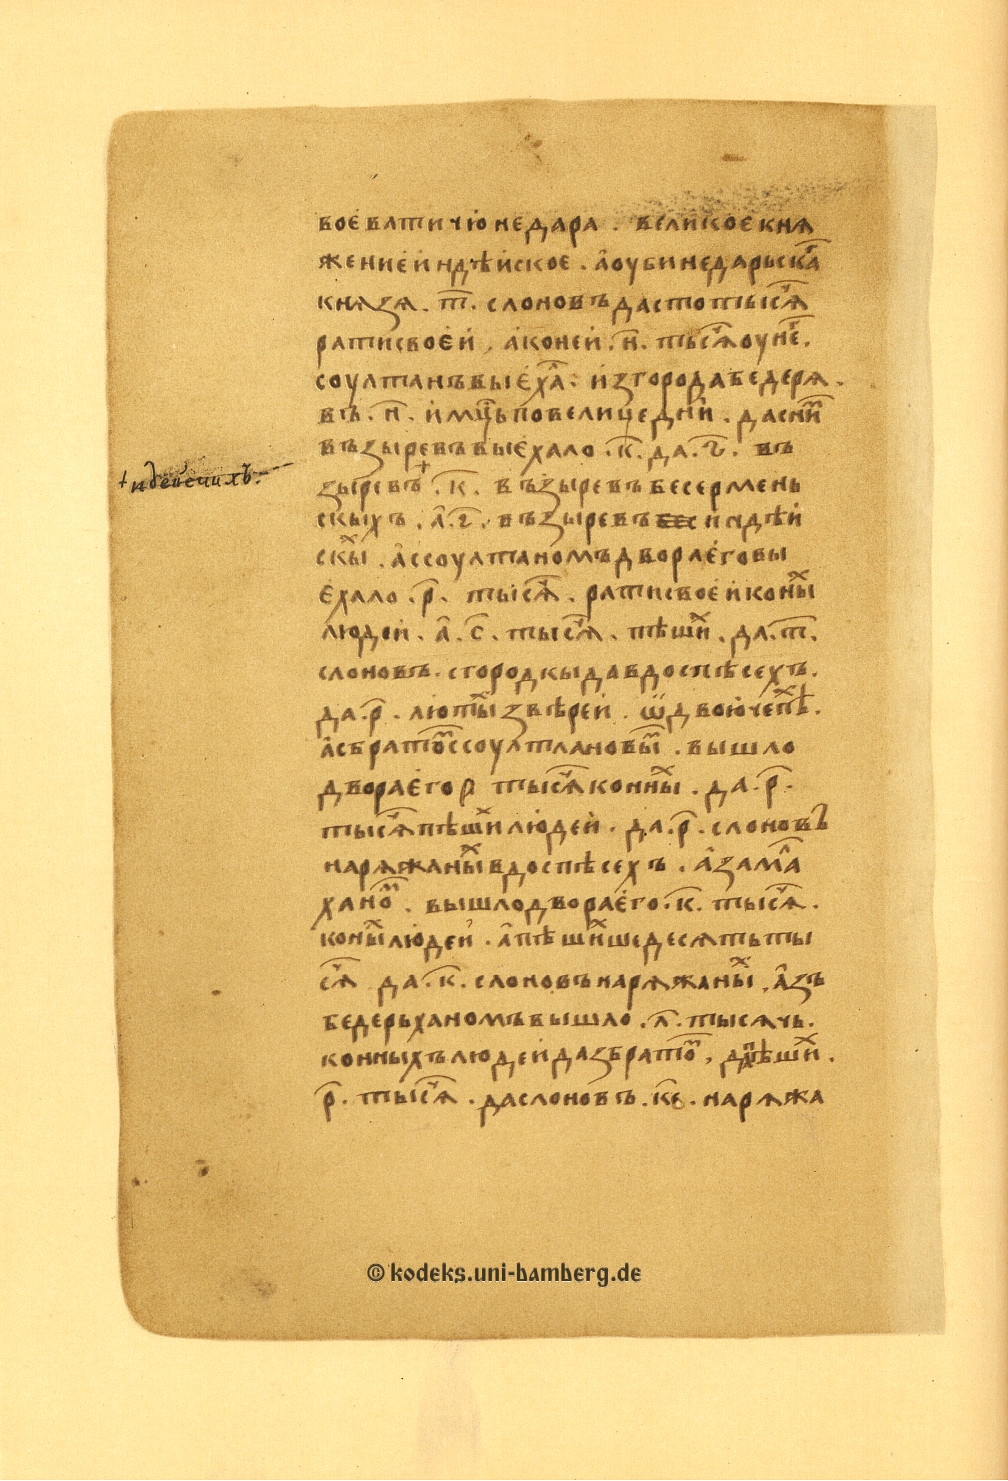 воевати чюнедара . великое кня
жение индѣйское . а оу бинедарьска
князя . т҃ . слоновъ да сто тысѧ
рати своей . а коней . н҃ . тысѧ оу не .
соултанъ выеха из города бедеря .
въ . н҃ . й мцъ по велице дни . да с ни
възыревъ выехало . к҃ . да . г҃ . въ
+ индейскихъ .
зыревъ + . к҃ . възыревъ бесермень
скыхъ . а . г҃ . възыревъ индѣй
скы . а с соултаномъ двора его вы
ехало . р҃ . тысѧ . рати своей коны
людей . а . с҃ . тысѧ . пѣши . да . т҃ .
слоновъ . с городкы да в доспѣсехъ .
да . р҃ . люты звѣрей . ѿ двою чепѣ .
а с брато с соултлановы . вышло
двора его р҃ тысѧ конны . да . р҃ .
тысѧ пѣши людей . да . р҃ . слоновъ
наряжаны в доспѣсехъ . а за мал
хано . вышло двора его . к҃ . тысѧ .
коны людей . а пѣши шедесятъ ты
сѧ да . к҃ . слоновъ наряжаны . а зъ
бедерьханомъ вышло . л҃ . тысячь .
конныхъ людей да з брато , да пѣши .
р҃ . тысѧ . да слоновъ . к҃е . наряжа
© kodeks.uni-bamberg.de